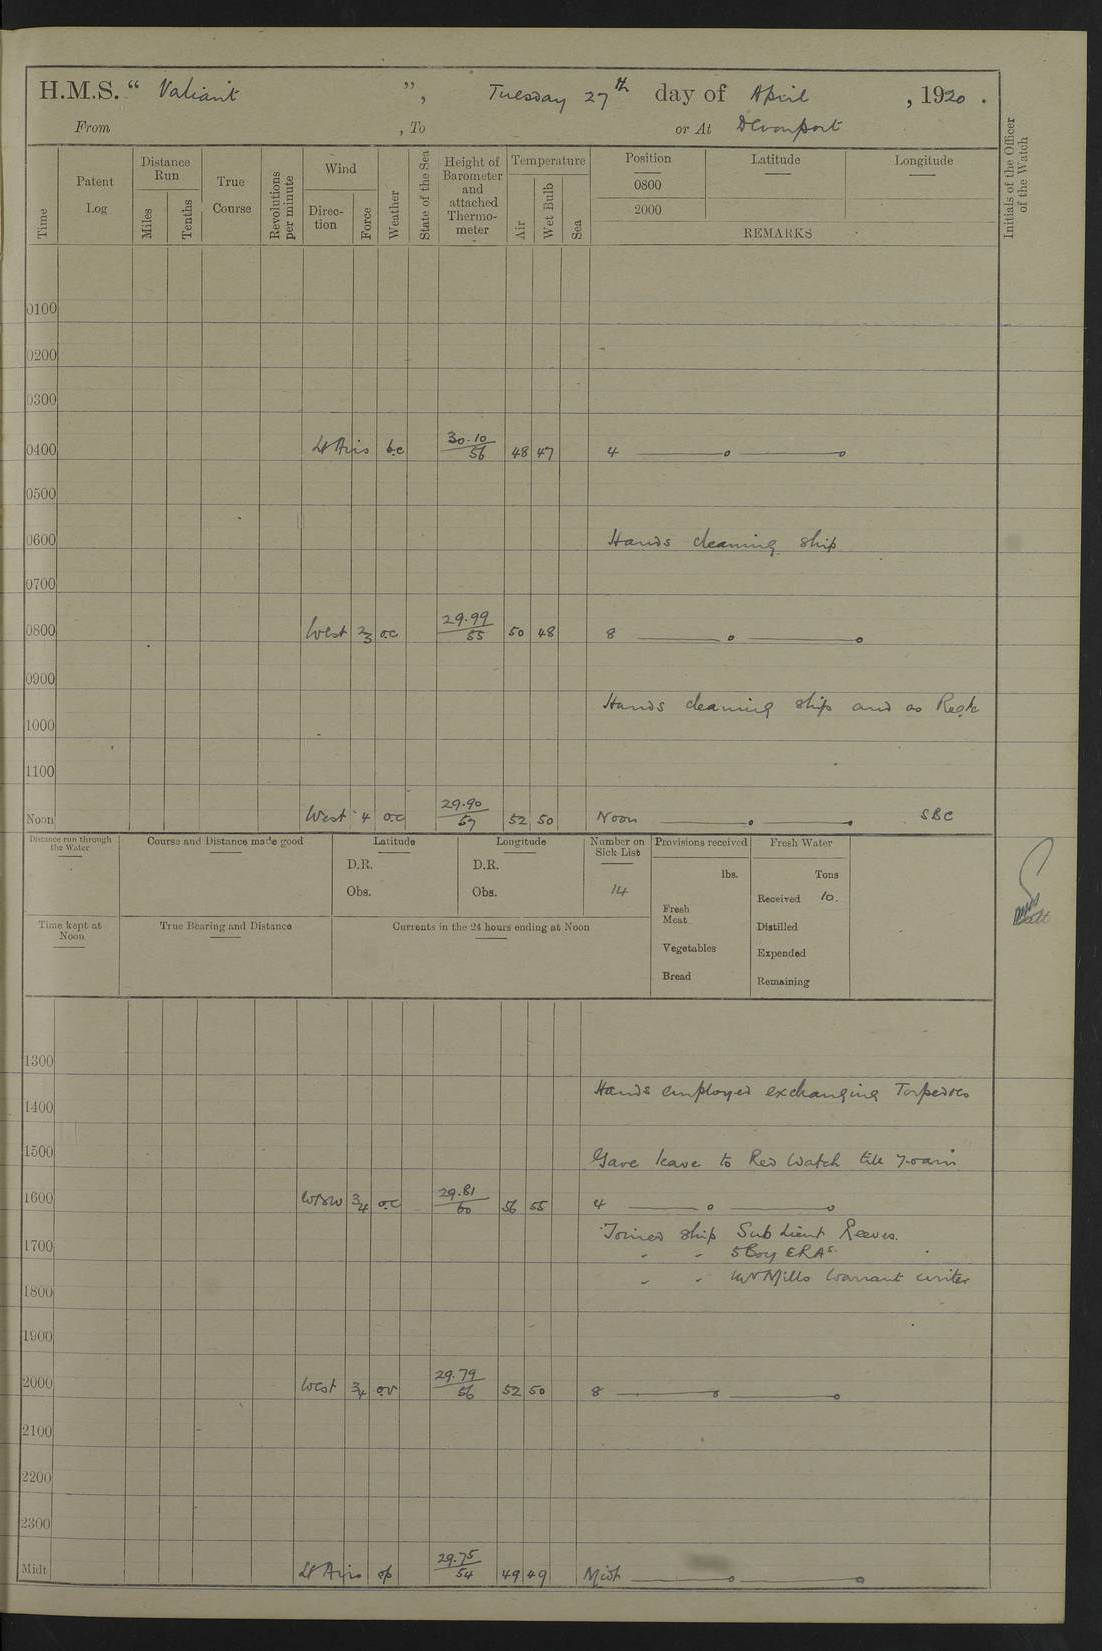 H.M.S. “ Valiant ”, Tuesday 27th day of April , 1920 .
From , To or At Devonport
Time
Patent Log
Distance Run
Miles
Tenths
True Course
Revolutions per minute
Wind
Direc-tion
Force
Weather
State of the Sea
Height of Barometer and attached Thermo-meter
Temperature
Air
Wet Bulb
Sea
Position
0800
2000
Latitude
Longitude
REMARKS
Initials of the Officer of the Watch
0100
0200
0300
0400 Lt Airs b.c 30.10/56 48 47 4
0500
0600 Hands cleaning ship
0700
0800 West 2/3 o.c 29.99/55 50 48 8
0900
Hands cleaning ship and as Reqte
1000
1100
Noon West 4 o.c 29.90/57 52 50 Noon SBC
Distance run through the Water
Course and Distance made good
Latitude
D.R.
Obs.
Longitude
D.R.
Obs.
Number on Sick List
14
Provisions received
lbs.
Fresh Meat
Vegetables
Bread
Fresh Water
Tons
Received 10.
Distilled
Expended
Remaining
Time kept at Noon
True Bearing and Distance
Currents in the 24 hours ending at Noon
1300
Hands employed exchanging Torpedoes
1400
1500 Gave leave to Red Watch till 7.0am
1600 WBW 3/4 o.c 29.81/60 56 55 4
Joined ship Sub Lieut Reeves.
1700 " " 5 Boy ERAs.
" " Mr Mills Warrant writer
1800
1900
2000 West 3/4 o.v 29.79/56 52 50 8
2100
2200
2300
Midt Lt Airs op 29.75/54 49 49 Midt